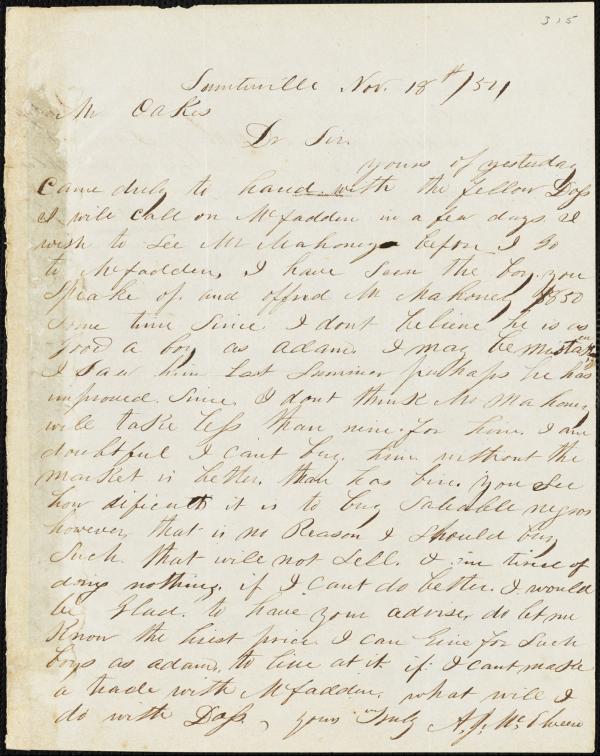 315
Sumterville Nov. 18th/54
Mr Oakes
Dr Sir
yours of yesterday
Came duly to hand with the fellow Doss
I will Call on McFadden in a few days I
wish to See Mr Mahoney before I Go
to McFadden, I have Seen the boy you
Speake of. and offerd Mr Mahoney $850
Some time Since. I dont believe he is as
Good a boy as adam. I may be mistaken
I Saw him Last Summer perhaps he has
improved. Since. I dont think Mr Mahoney
will take less than nine for him. I am
doubtful I cant buy. him. without the
market is better. than has bin. you See
how dificult it is to buy Saleable negros
however, that is no Reason I Should buy
Such. that will not Sell. I am tired of
doing nothing. if I Cant do better. I would
be Glad. to have your advise, do let me
Know the hiest price I can Give for Such
boys as adam, to live at it. if I cant make
a trade with McFadden. what will I
do with Doss, yours Truly A. J. McElveen